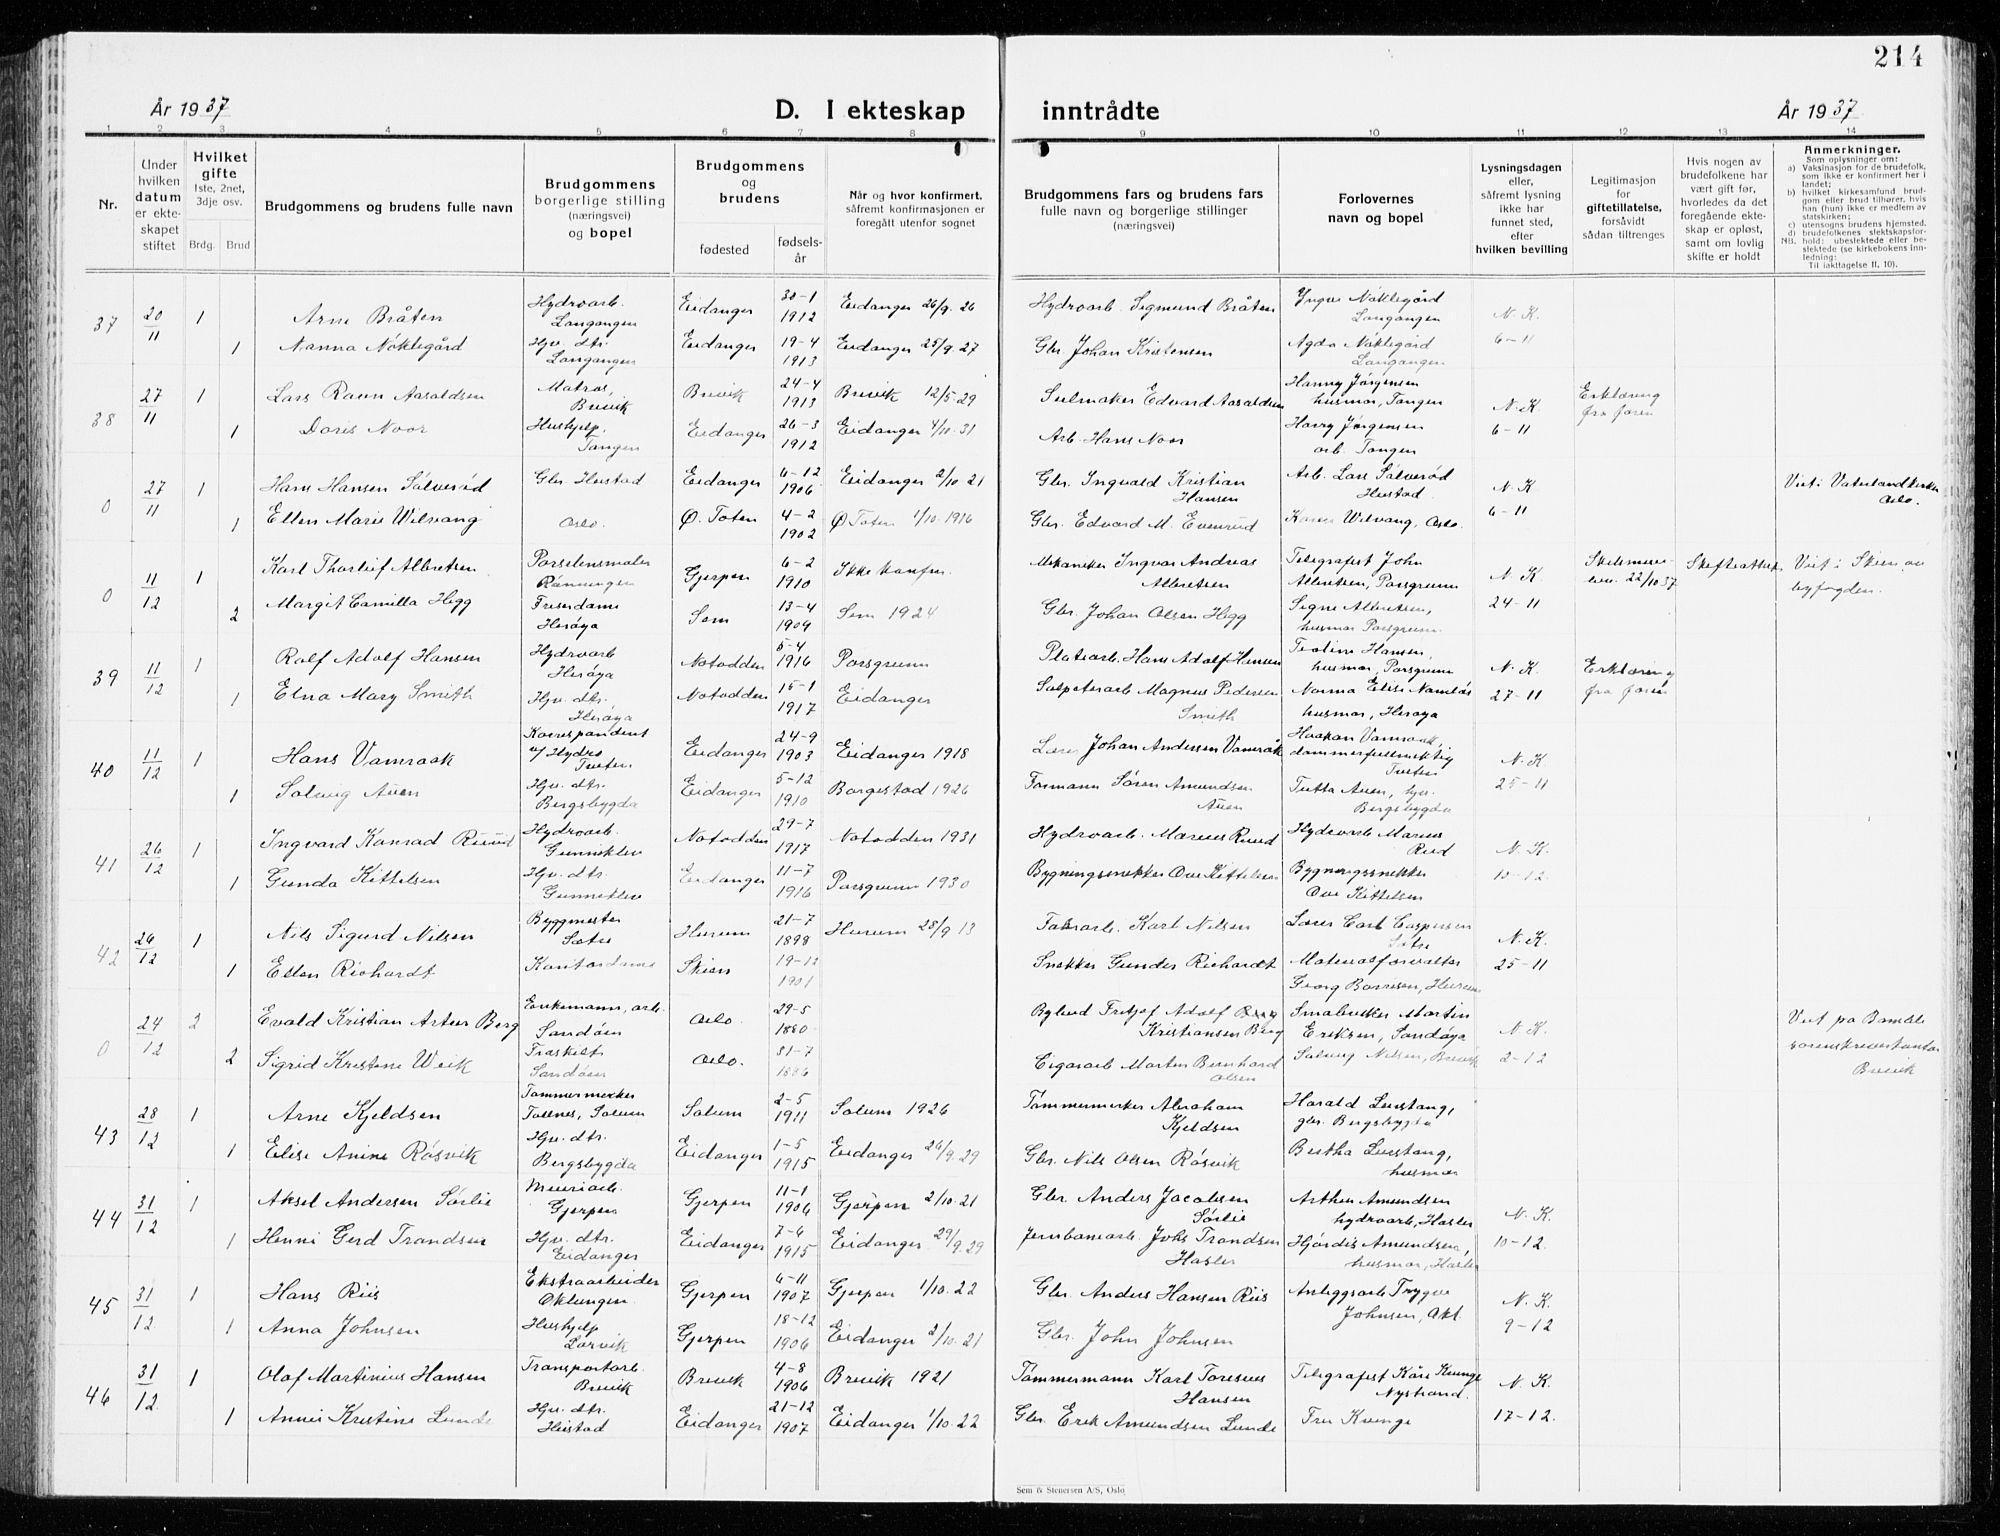 214
År 1937
D. I ekteskap
inntrådte
År 1937
1 2 3 4 5 6 7 8 9 10 11 12 13 14
Nr.
Under hvilken datum er ekte-skapet stiftet
Hvilket gifte
1ste, 2net, 3dje osv.
Brdg. Brud
Brudgommens og brudens fulle navn
Brudgommens borgerlige stilling (næringsvei) og bopel
Brudgommens og brudens
fødested
fødsels-år
Når og hvor konfirmert, såfremt konfirmasjonen er foregått utenfor sognet
Brudgommens fars og brudens fars fulle navn og borgerlige stillinger (næringsvei)
Forlovernes navn og bopel
Lysningsdagen eller, såfremt lysning ikke har funnet sted, efter hvilken bevilling
Legitimasjon for giftetillatelse, forsåvidt sådan tiltrenges
Hvis nogen av brudefolkene har vært gift før, hvorledes da det foregående ekte-skap er opløst, samt om lovlig skifte er holdt
Anmerkninger.
Som oplysninger om:
a) Vaksinasjon for de brudefolk, som ikke er konfirmert her i landet;
b) hvilket kirkesamfund brud-gom eller brud tilhører, hvis han (hun) ikke er medlem av statskirken;
c) utensogns brudens hjemsted.
d) brudefolkenes slektskapsfor-hold: ubeslektede eller be-slektede (se kirkebokens inn-ledning:
NB. Til iakttagelse fl. 10).
37 20/11 1 Arne Bråten Hydroarb. Langangen Eidanger 30-1 1912 Eidanger 26/9. 26 Hydroarb. Sigmund Bråten Yngve Nøklegård Langangen N. K.
1 Nanna Nøklegård Hjv. dtr. Langangen Eidanger 19-4 1913 Eidanger 25/9. 27 Gbr. Johan Kristensen Agda Nøklegård Langangen 6-11
38 27/11 1 Lars Ravn Aaraldsen Matros, Brevik Brevik 24-4 1913 Brevik 12/5. 29 Seilmaker Edvard Aaraldsen Hanny Jørgensen husmor, Tangen N. K. Erklæring fra foren
1 Doris Noor Hushjelp, Tangen Eidanger 26-3 1912 Eidanger 4/10. 31 Arb. Hans Noor Harry Jørgensen arb. Tangen 6-11
0 27/11 1 Hans Hansen Sølverød Gbr. Heistad Eidanger 6-12 1906 Eidanger 2/10. 21 Gbr. Ingvald Kristian Hansen Arb. Lars Sølverød Heistad N. K Viet i Vaterlandkirke Oslo.
1 Ellen Marie Wilvang Oslo. Ø. Toten 4-2 1902 Ø Toten 1/10. 1916 Gbr. Edvard M. Evenrud Karen Wilvang, Oslo. 6-11
0 11/12 1 Karl Thorleif Albretsen Porselensmaler Rønningen Gjerpen 6-2 1910 Ikke konfir. Mekaniker Ingvar Andreas Albretsen Telegrafist John Albretsen, Porsgrunn N. K 22/10 37 Skifteattest Viet i Skien av byfogden.
2 Margit Camilla Hegg Herøya Sem 13-4 1904 Sem 1924 Gbr. Johan Olsen Hegg Signe Albretsen, husmor Porsgrunn. 24-11
39 11/12 1 Rolf Adolf Hansen Hydroarb Herøya Notodden 5-4 1916 Porsgrunn Platearb. Hans Adolf Hansen Hansen, husmor, Porsgrunn N. K. Erklæring fra foren
1 Elna Mary Smith Hjv. dtr. Herøya Notodden 15-1 1917 Eidanger Salpeterarb Magnus Pedersen Smith Norma Elise Namløs husmor, Herøya 27-11
40 11/12 1 Hans Vamraak Korrespondent v/ Hydro Tveten Eidanger 24-9 1903 Eidanger 1918 Johan Andersen Vamraak Haakon Vamraak, dommerfullmektig Tveten N. K.
1 Solveig Auen Hjv. dtr. Bergsbygda Eidanger 5-12 1910 Borgestad 1926 Formann Søren Amundsen Auen Tutta Auen, hjv. Bergsbygda 25-11
41 26/12 1 Ingvard Konrad Ruud Hydroarb. Gunneklev Notodden 29-7 1917 Notodden 1931 Hydroarb. Marius Ruud Hydroarb Marius Rud N. K.
1 Gunda Kittelsen Hjv. dtr. Gunneklev Eidanger 11-7 1916 Porsgrunn 1930 Bygningssnekker Ove Kittelsen Bygningssnekker Ove Kittelsen 10-12.
42 26/12 1 Nils Sigurd Nilsen Byggmester Sætre Hurum 21-7 1898 Hurum 28/9 13 Fabrarb. Karl Nilsen Carl Caspersen Sætre N. K.
1 Ellen Richardt Kontordame Skien 19-12 1901 Snekker Gunder Richardt Materialforvalter Georg Borresen, Hurum 25-11
0 24/12 2 Evald Kristian Artur Berg Enkemann, arb. Sandøen Oslo. 29-5 1880 Fritjof Adolf Kristiansen Berg Småbruker Martin Eriksen, Sandøya N. K. Viet på Bamble sorenskriverkontor Brevik
2 Sigrid Kristine Weik Fraskilt Sandøen Oslo. 31-7 1886 Cigararb Morten Bernhard Olsen Solveig Nilsen, Brevik 2-12
43 28/12 1 Arne Kjeldsen Tømmermerker Tollnes, Solum Solum 2-5 1911 Solum 1926 Tømmermerker Abraham Kjeldsen Harald Lerstang, gbr. Bergsbygda
1 Elise Anine Røsvik Hjv. dtr. Bergsbygda Eidanger 1-5 1915 Eidanger 29/9. 29 Gbr. Nils Olsen Røsvik Bertha Lerstang, husmor
44 31/12 1 Aksel Andersen Sørlie Meieriarb. Gjerpen Gjerpen 11-1 1906 Gjerpen 2/10. 21 Gbr. Anders Jacobsen Sørlie Arthur Amundsen hydroarb, Hasler N. K.
1 Henni Gerd Trondsen Hjv. dtr. Eidanger Eidanger 7-6 1915 Eidanger 29/9. 29 Jernbanearb. Johs Trondsen Hasler Hjørdis Amundsen, husmor, Hasler 10-12.
45 31/12 1 Hans Riis Ekstraarbeider Oklungen. Gjerpen 6-11 1907 Gjerpen 1/10. 22 Gbr. Anders Hansen Riis Anleggsarb Trygve Johnsen, Okl. N. K.
1 Anna Johnsen Hushjelp Larvik Gjerpen 18-12 1906 Eidanger 2/10. 21 Gbr. John Johnsen 9-12
46 31/12 1 Olaf Martinius Hansen Transportarb. Brevik Brevik 4-8 1906 Brevik 1921 Tømmermann Karl Toresius Hansen Telegrafist Kåre Kvinge Nystrand. N. K.
1 Anna Kristine Lunde Hjv. dtr. Heistad Eidanger 21-12 1907 Eidanger 1/10. 22 Gbr. Erik Amundsen Lunde Fru Kvinge 17-12.
Sem & Stenersen A/S, Oslo